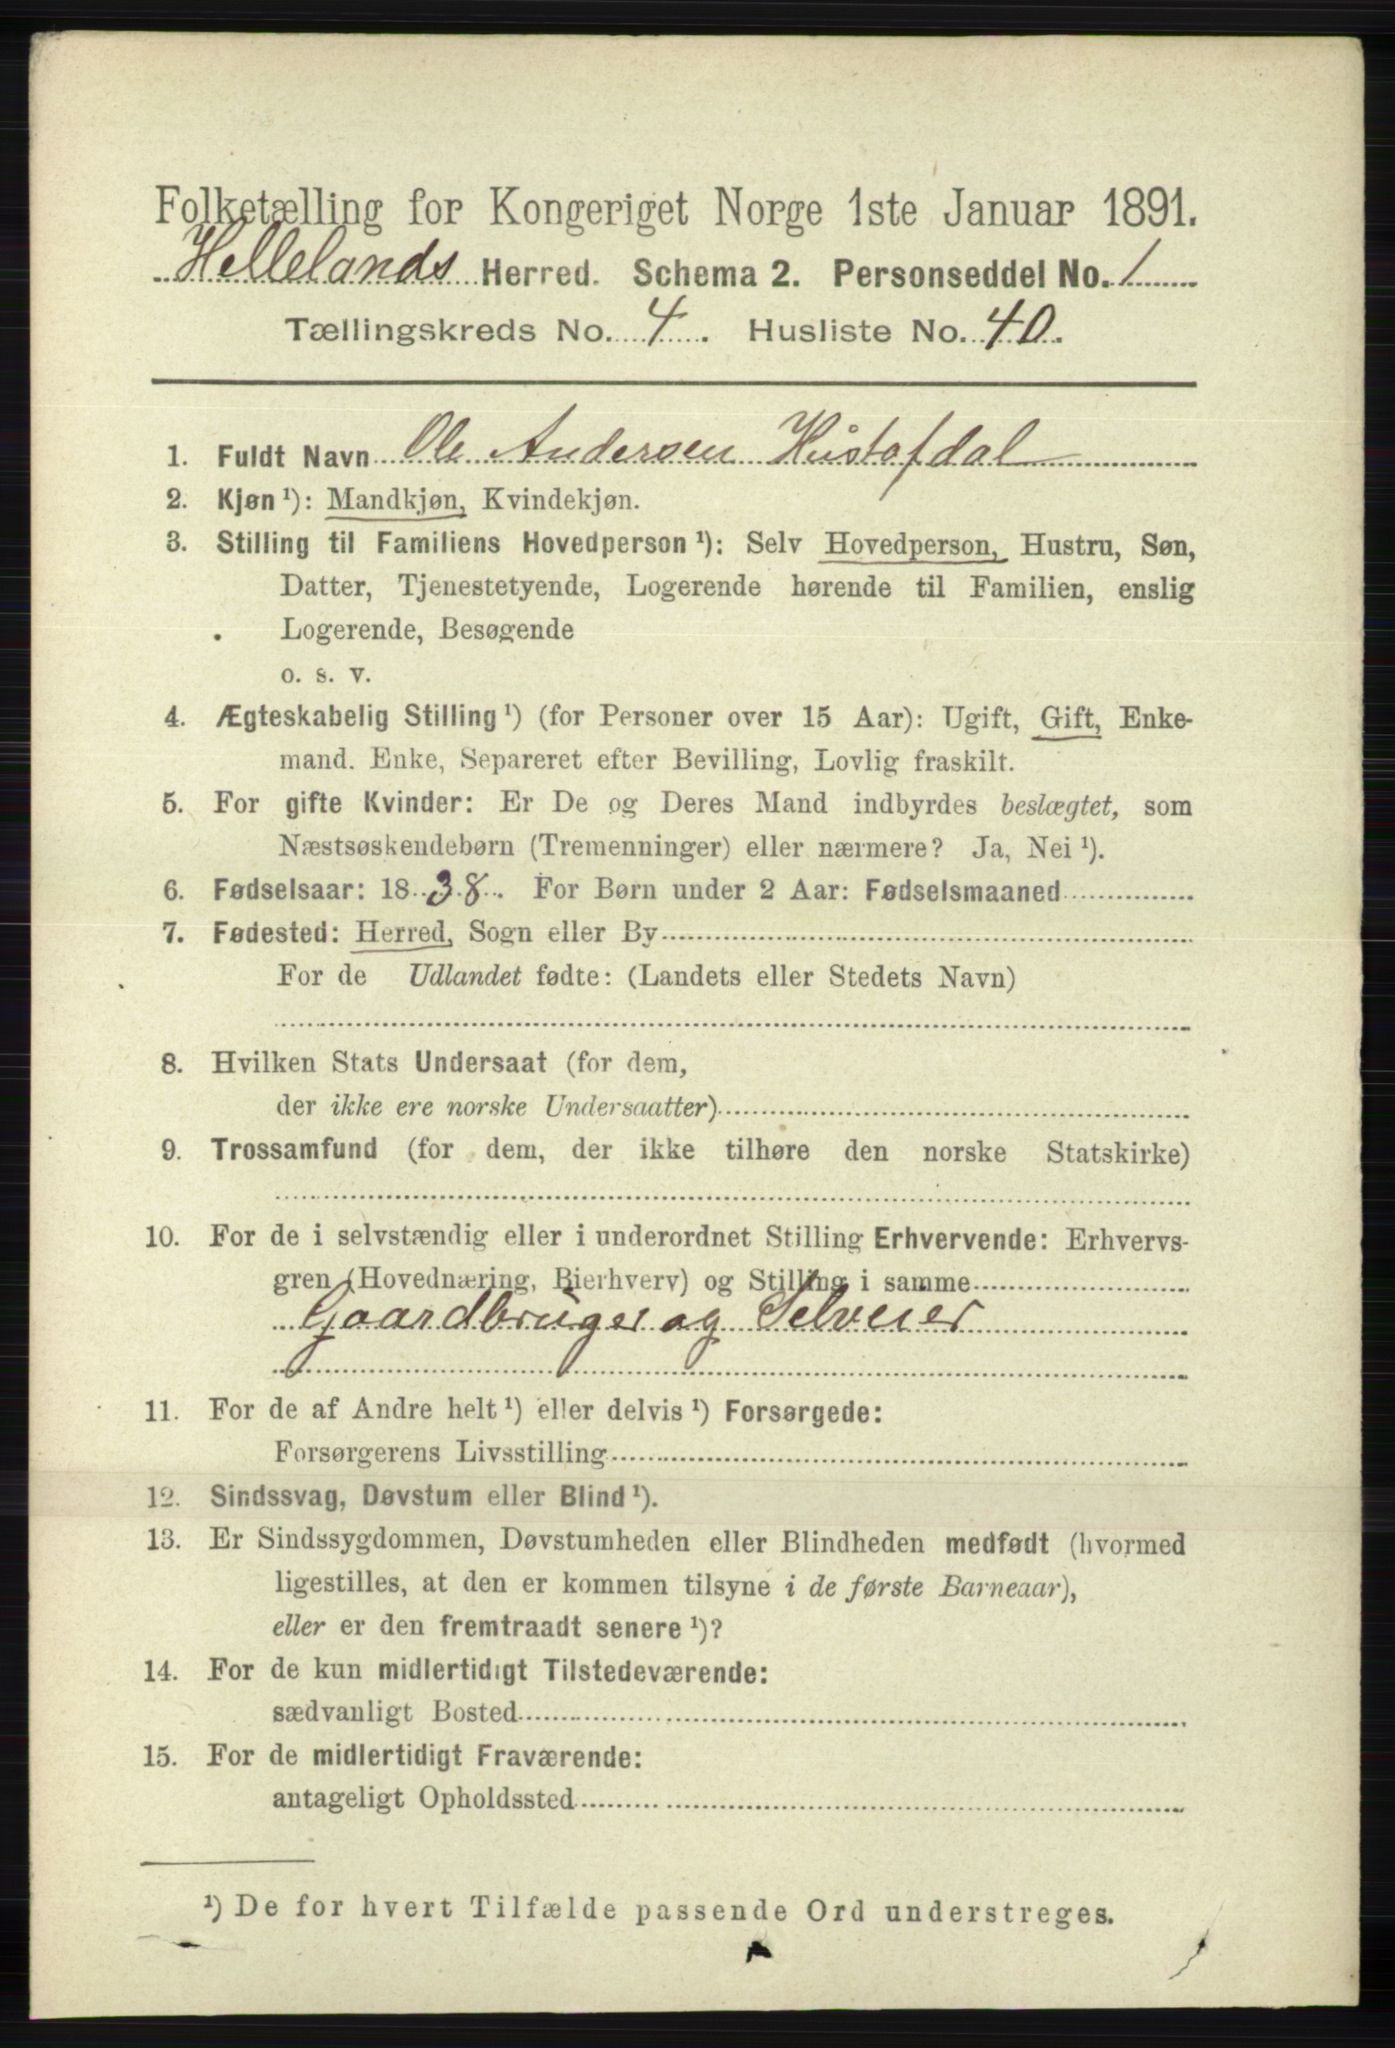 Folketælling for Kongeriget Norge 1ste Januar 1891.
Hellelands Herred. Schema 2. Personseddel No. 1
Tællingskreds No. 4. Husliste No. 40.
1. Fuldt Navn Ole Andersen Hustofdal
2. Kjøn ¹): Mandkjøn, Kvindekjøn.
3. Stilling til Familiens Hovedperson ¹): Selv Hovedperson, Hustru, Søn,
Datter, Tjenestetyende, Logerende hørende til Familien, enslig
Logerende, Besøgende
o. s. v.
4. Ægteskabelig Stilling ¹) (for Personer over 15 Aar): Ugift, Gift, Enke-
mand. Enke, Separeret efter Bevilling, Lovlig fraskilt.
5. For gifte Kvinder: Er De og Deres Mand indbyrdes beslægtet, som
Næstsøskendebørn (Tremenninger) eller nærmere? Ja, Nei ¹).
6. Fødselsaar: 1838. For Børn under 2 Aar: Fødselsmaaned
7. Fødested: Herred, Sogn eller By
For de Udlandet fødte: (Landets eller Stedets Navn)
8. Hvilken Stats Undersaat (for dem,
der ikke ere norske Undersaatter)
9. Trossamfund (for dem, der ikke tilhøre den norske Statskirke)
10. For de i selvstændig eller i underordnet Stilling Erhvervende: Erhvervs-
gren (Hovednæring, Bierhverv) og Stilling i samme
Gaardbruger og Selveier
11. For de af Andre helt ¹) eller delvis ¹) Forsørgede:
Forsørgerens Livsstilling
12. Sindssvag, Døvstum eller Blind ¹).
13. Er Sindssygdommen, Døvstumheden eller Blindheden medfødt (hvormed
ligestilles, at den er kommen tilsyne i de første Barneaar),
eller er den fremtraadt senere ¹)?
14. For de kun midlertidigt Tilstedeværende:
sædvanligt Bosted
15. For de midlertidigt Fraværende:
antageligt Opholdssted
¹) De for hvert Tilfælde passende Ord understreges.